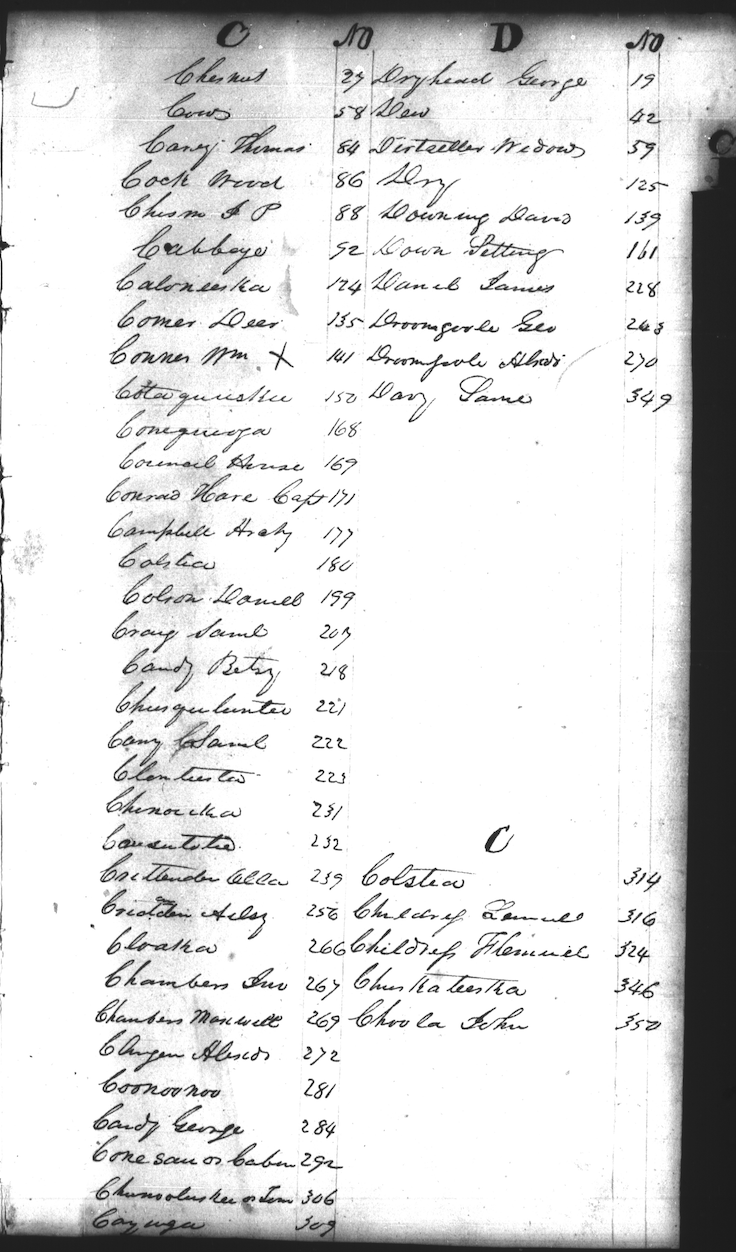 C No D No
Chesnut 27 Dryhead George 19
Cows 58 Dew 42
Carey Thomas 84 Dirtseller Widows 59
Cock Wood 86 Dry 125
Chism I P 88 Downing David 139
Cabbage 92 Down Setting 161
Caloneeska 124 Daniel James 228
Comer Deer 135 Droomgoole Geo 243
Conner Wm X 141 Droomgoole 270
150 Davy Lame 349
168
Council House 169
Conrad Hare Capt 171
Campbell Archy 177
Colstea 180
Colson Daniel 199
Craig Saml 207
Candy Betsy 218
221
Cany Saml 222
223
231
232
Crittenden 239 Colstea 314
256 Childress Lemuel 316
Cloaka 266 Childress Flemuiel 324
Chambers Jno 267 Chuskateeska 346
Chambers Maxwell 269 Choola John 350
272
Coonoonoo 281
Candy George 284
or Cabin 292
or Tom 306
Cayuga 309
C
C